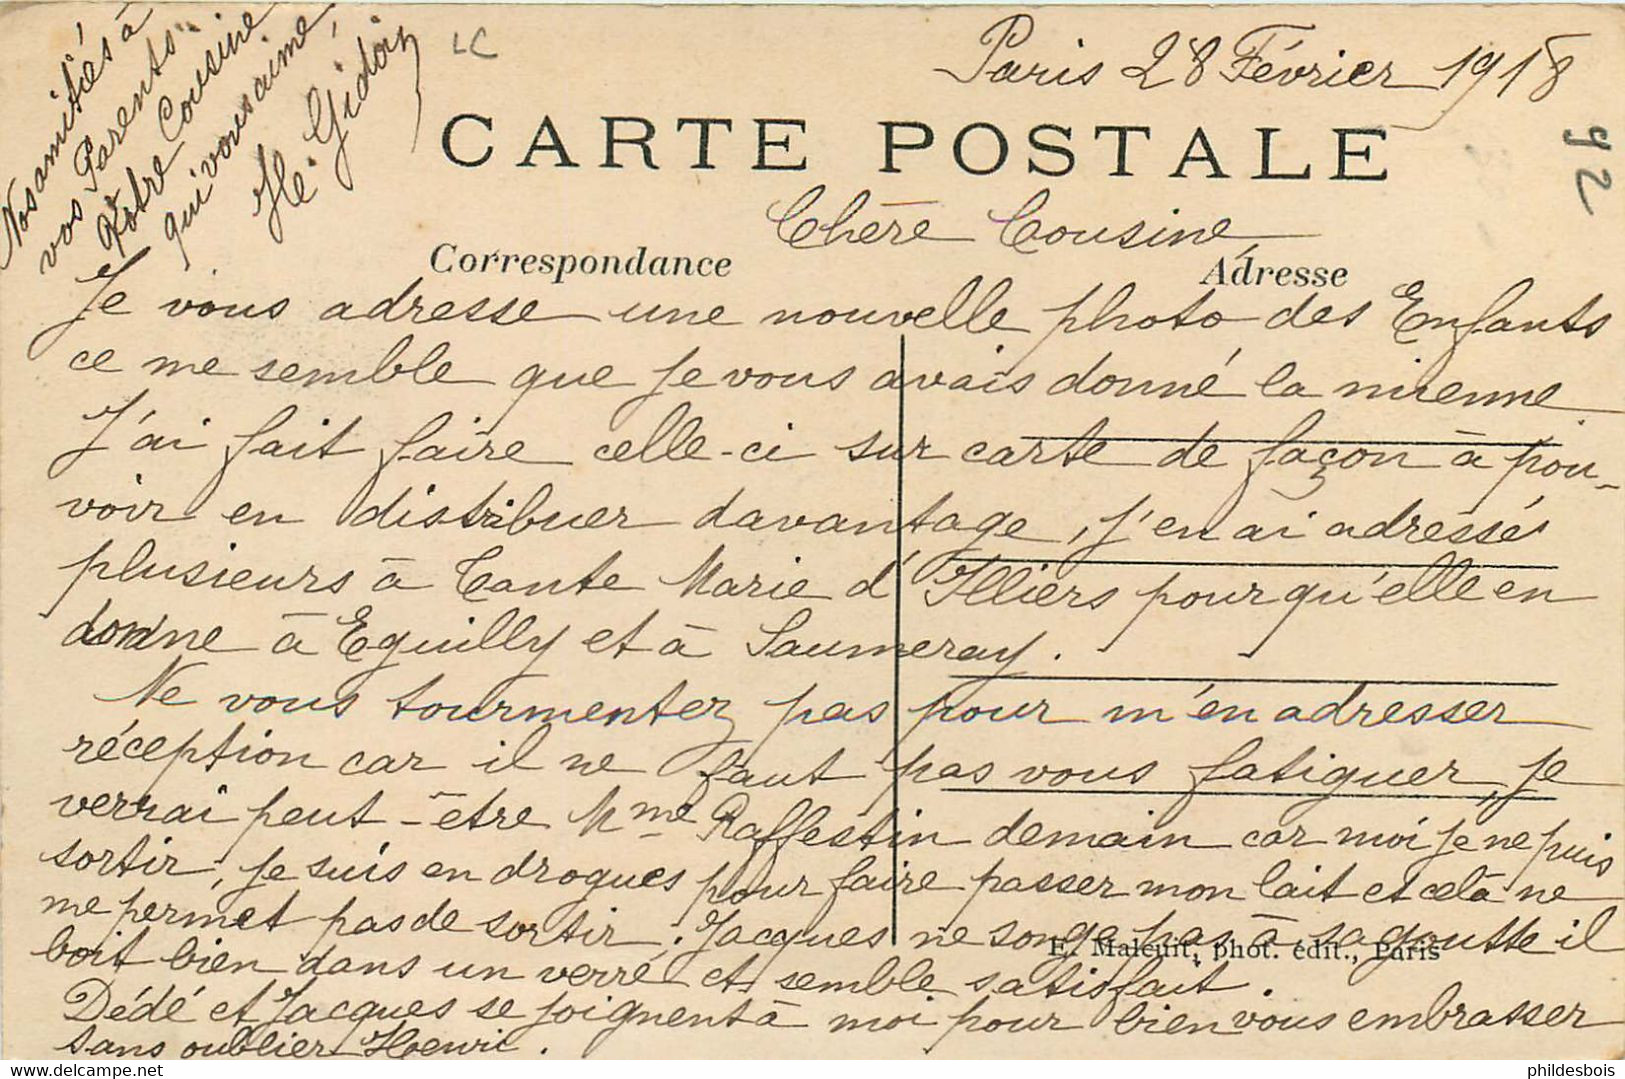 Paris 28 Février 1918
LC
92
CARTE POSTALE
Chère Cousine
Correspondance
Adresse
Je vous adresse une nouvelle photo des Enfants
ce me semble que je vous avais donné la mienne
J'ai fait faire celle-ci sur carte de façon à pou-
voir en distribuer davantage, j'en ai adressé
plusieurs à Tante Marie d'Illiers pour qu'elle en
donne à Eguilly et à Saumeray.
Ne vous tourmentez pas pour m'en adresser
réception car il ne faut pas vous fatiguer, je
verrai peut-être Mme Raffestin demain car moi je ne puis
sortir, je suis en drogues pour faire passer mon lait et celà ne
me permet pas de sortir. Jacques ne songe pas à sa goutte il
boit bien dans un verre et semble satisfait.
Dédé et Jacques se joignent à moi pour bien vous embrasser
sans oublier Henri.
Nos amitiés à
vos Parents.
Votre Cousine
qui vous aime,
Gidoin
E. Malcuit, phot. édit., Paris
www.delcampe.net
phildesbois